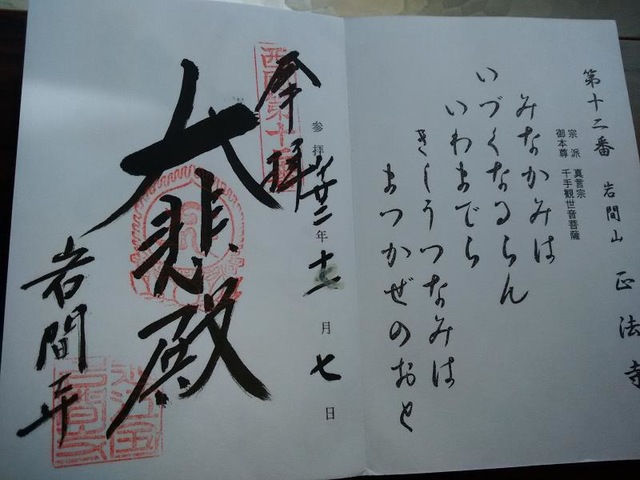 第十二番 岩間山 正法寺
宗派 真言宗
御本尊 千手観世音菩薩
みなかみは
いづくなるらん
いわまでら
きしうつなみは
まつかぜのおと
奉拝
参拝 廿二年十二月七日
西国第十二番
大悲殿
岩間寺